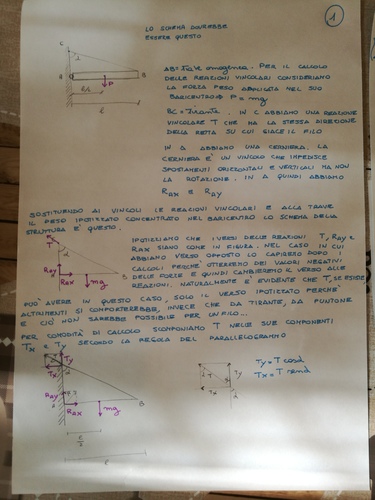 1
LO SCHEMA DOVREBBE
ESSERE QUESTO
C
A
B
P
l/2
l
AB = Trave omogenea. PER IL CALCOLO
DELLE REAZIONI VINCOLARI CONSIDERIAMO
LA FORZA PESO APPLICATA NEL SUO
BARICENTRO P = mg
BC = Tirante. IN C ABBIAMO UNA REAZIONE
VINCOLARE T CHE HA LA STESSA DIREZIONE
DELLA RETTA SU CUI GIACE IL FILO
IN A ABBIAMO UNA CERNIERA. LA
CERNIERA E' UN VINCOLO CHE IMPEDISCE
SPOSTAMENTI ORIZZONTALI E VERTICALI MA NON
LA ROTAZIONE. IN A QUINDI ABBIAMO
RAX E RAY
SOSTITUENDO AI VINCOLI LE REAZIONI VINCOLARI E ALLA TRAVE
IL PESO IPOTIZZATO CONCENTRATO NEL BARICENTRO LO SCHEMA DELLA
STRUTTURA E' QUESTO.
T
RAY
RAX
mg
B
IPOTIZIAMO CHE I VERSI DELLE REAZIONI T, RAY E
RAX SIANO COME IN FIGURA. NEL CASO IN CUI
ABBIAMO VERSO OPPOSTO LO CAPIREMO DOPO I
CALCOLI PERCHÈ OTTERREMO DEI VALORI NEGATIVI
DELLE FORZE E QUINDI CAMBIEREMO IL VERSO ALLE
REAZIONI. NATURALMENTE È EVIDENTE CHE T,
PUO' AVERE IN QUESTO CASO, SOLO IL VERSO IPOTIZZATO PERCHÈ
ALTRIMENTI SI COMPORTEREBBE, INVECE CHE DA TIRANTE, DA PUNTONE
E CIO' NON SAREBBE POSSIBILE PER UN FILO...
PER COMODITÀ DI CALCOLO SCOMPONIAMO T NELLE SUE COMPONENTI
TX E TY SECONDO LA REGOLA DEL PARALLELOGRAMMO
TY
TX
RAY
A
RAX
mg
B
l/2
l
T
TY
TX
TY = T cosα
TX = T senα